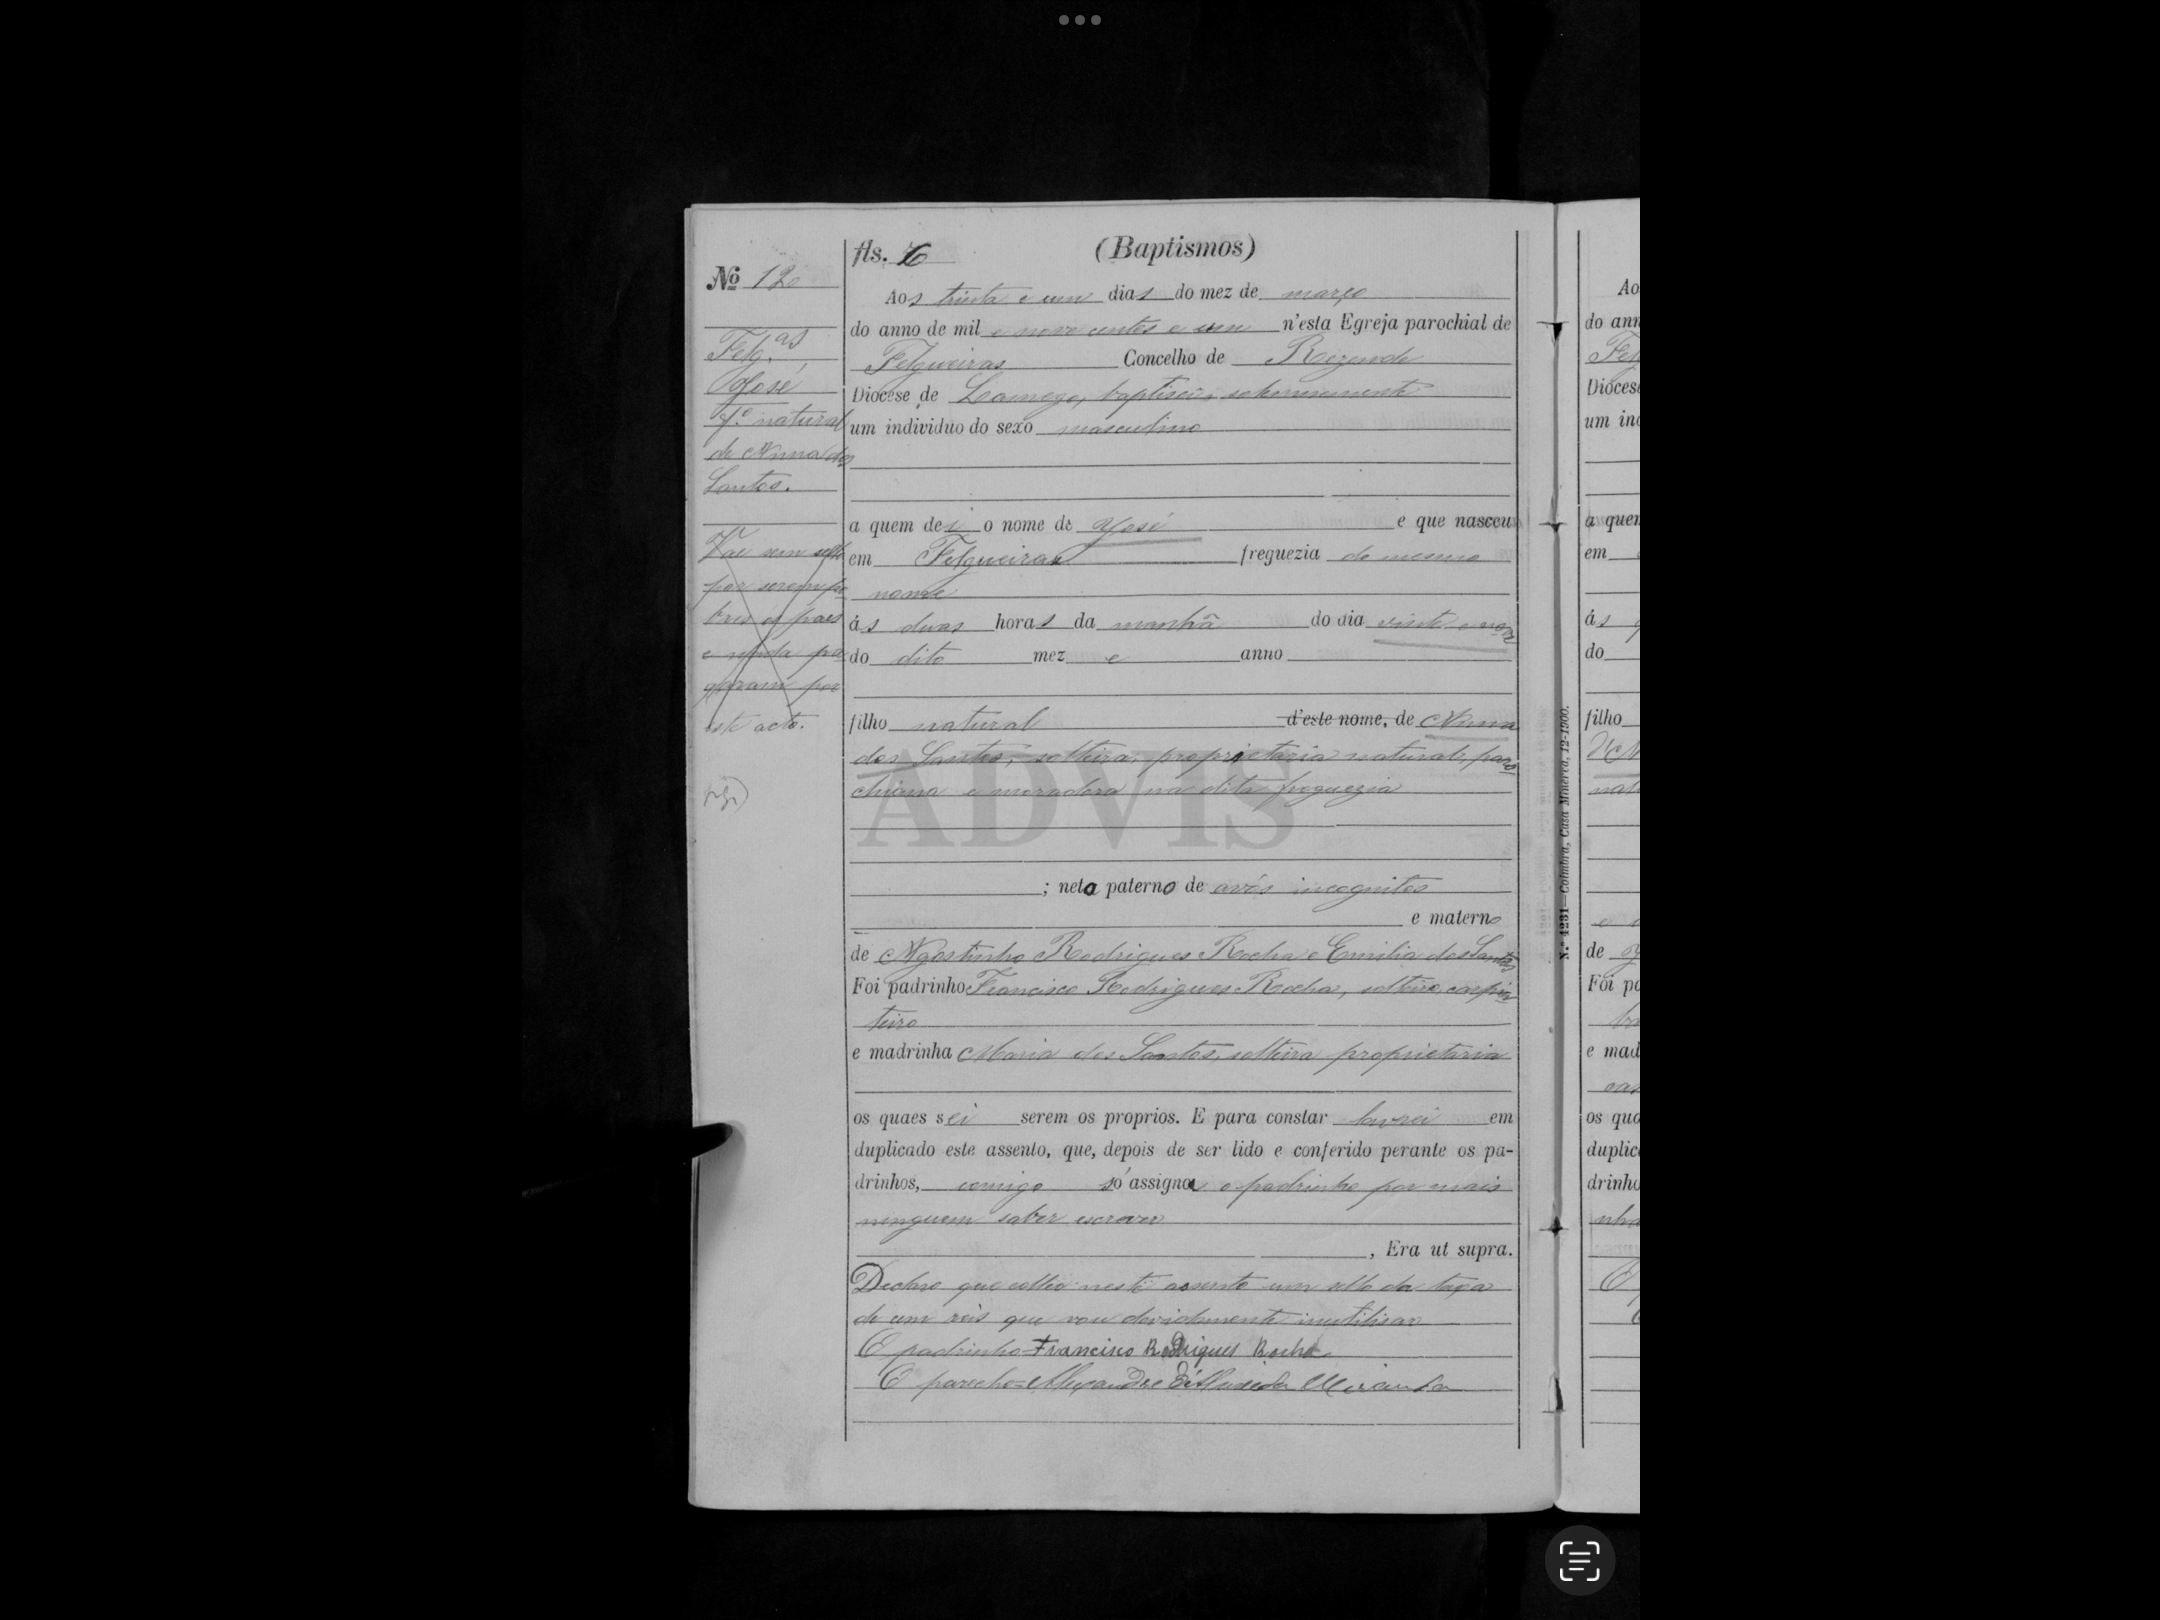 fls. 6
(Baptismos)
Nº 12
Felg.as
José
f.º natural
de Anna dos
Santos.
Vae sem sello
por serem po-
bres os paes
e nada pa-
garam por
este acto.
Aos trinta e um dias do mez de março
do anno de mil e nove centos e um n'esta Egreja parochial de
Felgueiras Concelho de Rezende
Diocese de Lamego, baptisei solemnemente
um individuo do sexo masculino
a quem dei o nome de José e que nasceu
em Felgueiras freguezia do mesmo
nome
ás duas horas da manhã do dia vinte e nove
do dito mez e anno
filho natural d'este nome, de Anna
dos Santos, solteira, proprietaria natural, paro-
chiana e moradora na dita freguezia
; neto paterno de avós incognitos
e materno
de Agostinho Rodrigues Rocha e Emilia dos Santos
Foi padrinho Francisco Rodrigues Rocha, solteiro, carpin-
teiro
e madrinha Maria dos Santos, solteira proprietaria
os quaes sei serem os proprios. E para constar lavrei em
duplicado este assento, que, depois de ser lido e conferido perante os pa-
drinhos, comigo só assignou o padrinho por mais
ninguem saber escrever
, Era ut supra.
Declaro que collei neste assento um sello da taxa
de cem reis que vou devidamente inutilisar
O padrinho = Francisco Rodrigues Rocha
O parocho = Alexandre d'Almeida Miranda
ADVIS
N.º 4231—Coimbra, Casa Minerva, 12-1900.
Ao
do ann
Fel
Diocese
um ind
a quem
em
ás
do
filho
nat
de
Foi pa
e mad
os qua
duplic
drinho
nha